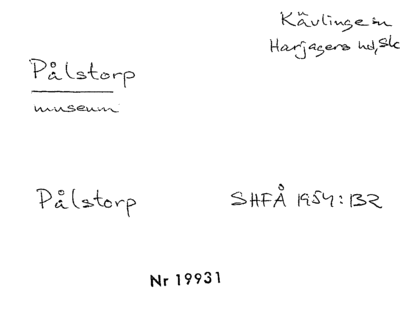 Kävlinge sn
Harjagers hd, Sk
Pålstorp
museum
Pålstorp SHFÅ 1954: 132
Nr 19931